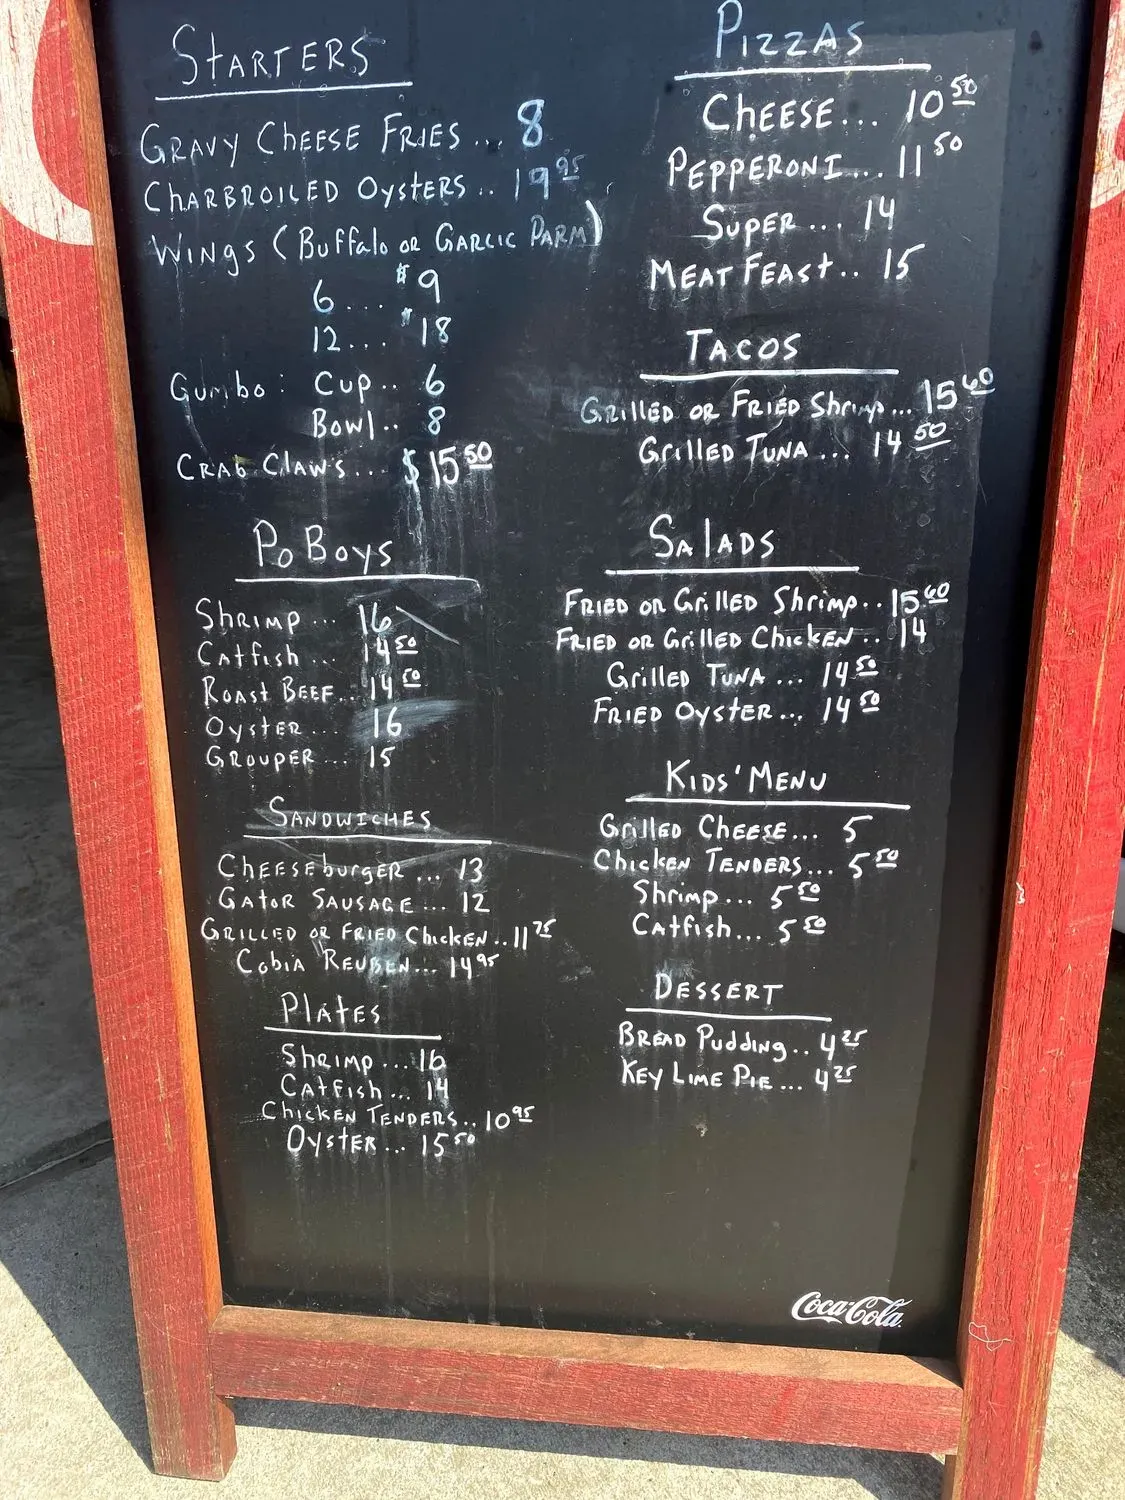 STARTERS
GRAVY CHEESE FRIES... 8
CHARBROILED OYSTERS.. 19 95
WINGS (BUFFALO OR GARLIC PARM)
6... $9
12... $18
GUMBO: CUP.. 6
BOWL.. 8
CRAB CLAWS... $15 50
PO BOYS
SHRIMP... 16
CATFISH... 14 50
ROAST BEEF.. 14 50
OYSTER... 16
GROUPER... 15
SANDWICHES
CHEESEBURGER... 13
GATOR SAUSAGE... 12
GRILLED OR FRIED CHICKEN.. 11 75
COBIA REUBEN... 14 95
PLATES
SHRIMP... 16
CATFISH... 14
CHICKEN TENDERS.. 10 95
OYSTER... 15 50
PIZZAS
CHEESE... 10 50
PEPPERONI... 11 50
SUPER... 14
MEAT FEAST.. 15
TACOS
GRILLED OR FRIED SHRIMP... 15 60
GRILLED TUNA... 14 50
SALADS
FRIED OR GRILLED SHRIMP.. 15.60
FRIED OR GRILLED CHICKEN.. 14
GRILLED TUNA... 14 50
FRIED OYSTER... 14 50
KIDS' MENU
GRILLED CHEESE... 5
CHICKEN TENDERS... 5 50
SHRIMP... 5 50
CATFISH... 5 50
DESSERT
BREAD PUDDING.. 4 25
KEY LIME PIE... 4 25
Coca-Cola